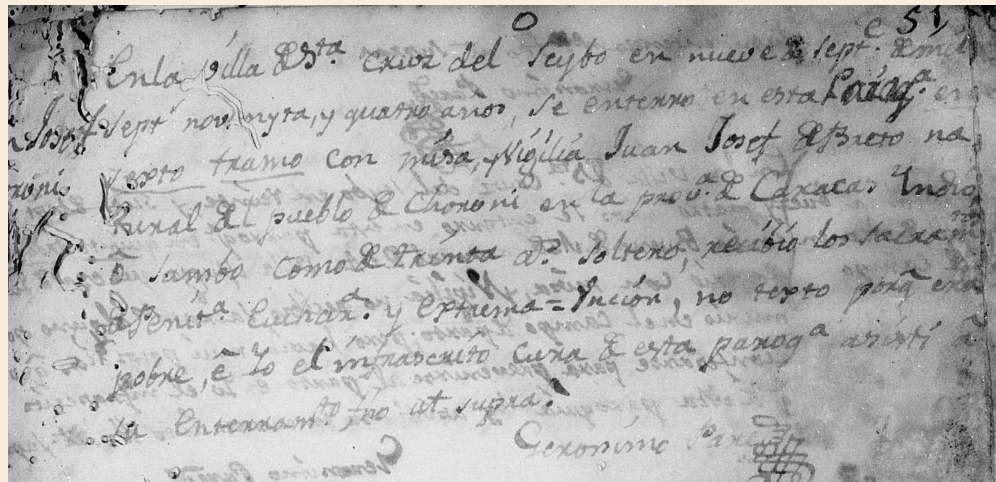 O
C 51,
En la villa de Sta. Cruz del Seybo en nueve de Sept.e de mil
Sept.s novenyta, y quatro años, se enterro en esta Parroq.a en el
sexto tramo con misa, y Vigilia Juan Josef de Brito na
tural del pueblo de Choroní en la prov.a de Caracas Indio
o sambo como de treinta a.s soltero, recibió los sacram.tos
de Penit.a Euchar.a y extrema=Vnción, no texto porq. era
pobre, e Yo el infrascrito Cura de esta parroq.a asistí a
su enterram.to, fho ut supra.
Geronimo
Josef